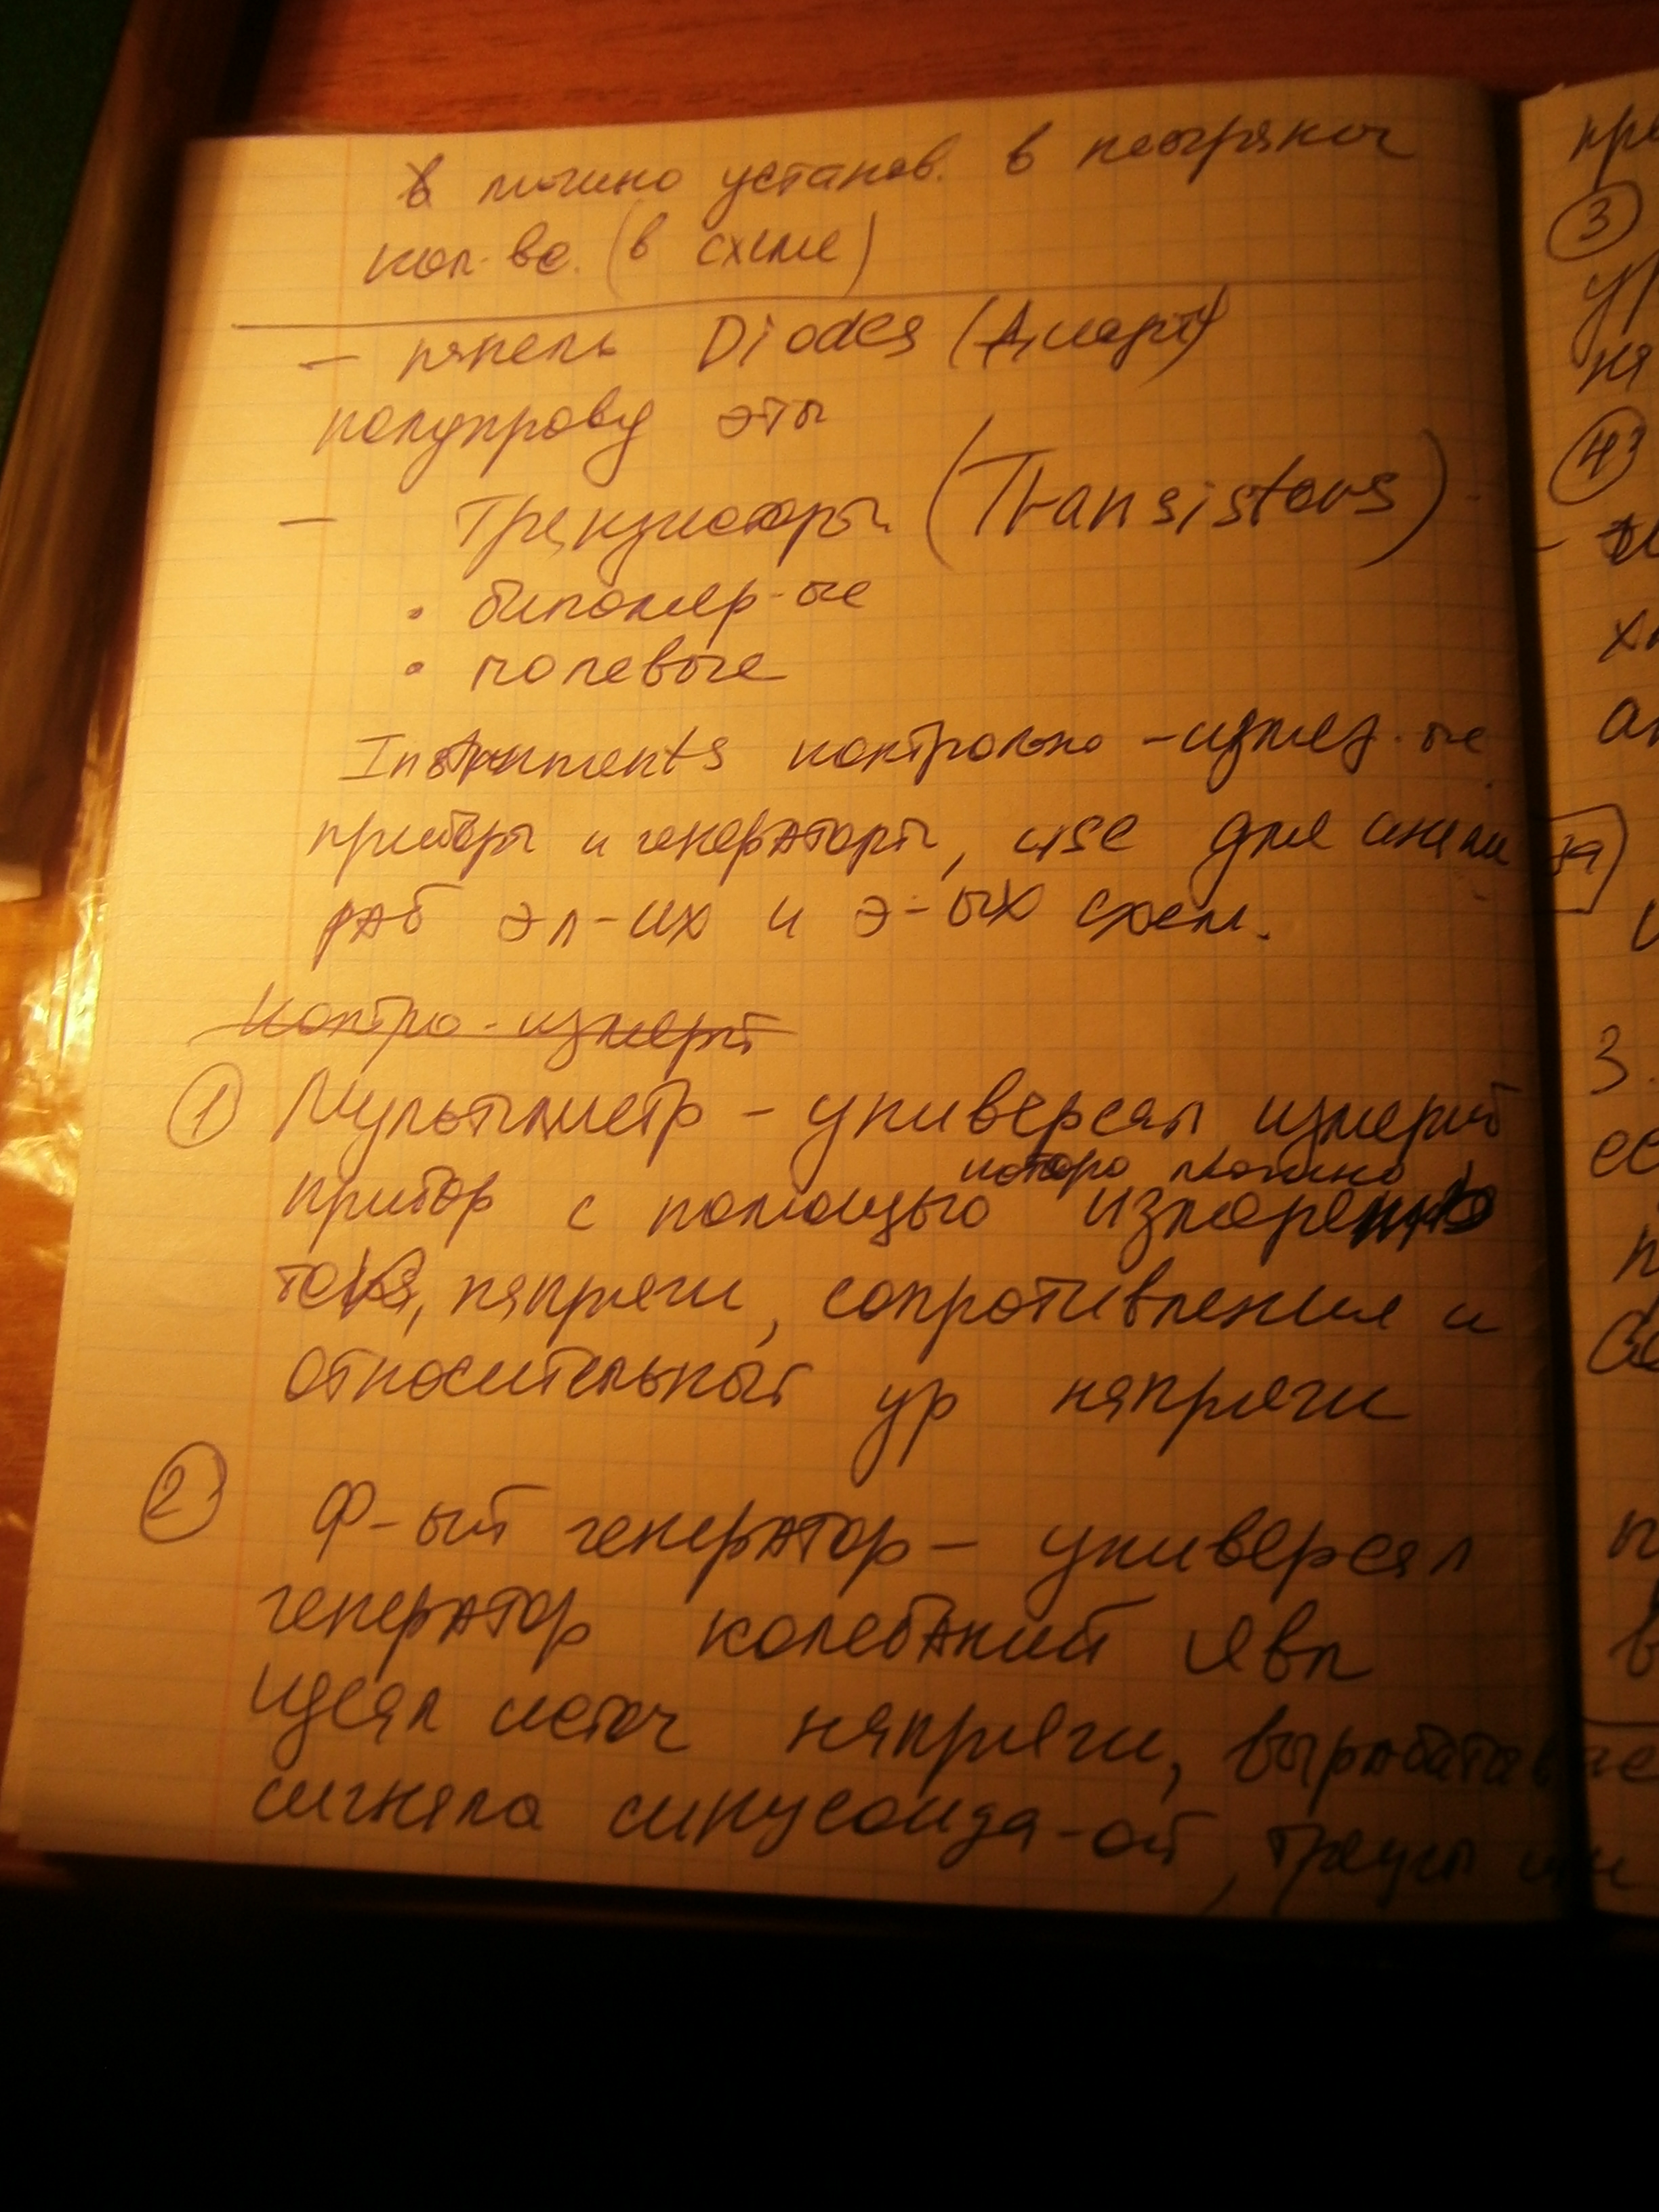 можно установ. в неогранич
кол-ве. (в схеме)
- панель Diodes (Диоды)
полупровод эты
- Транзисторы (Transistors)
• биполяр-ые
• полевые
Instruments контрольно-измер-ые
приборы и генераторы, use для анали
раб эл-их и э-ых схем.
Контро-измерит
① Мультиметр - универсал измерит
прибор с помощью которо можно измерить
тока, напряги, сопротивления и
относительный ур напряги
② Ф-ый генератор - универсал
генератор колебаний явл
идеал источ напряги, вырабатывае
сигнала синусоида-ой,
пр
③
ня
④
за
3.
ес